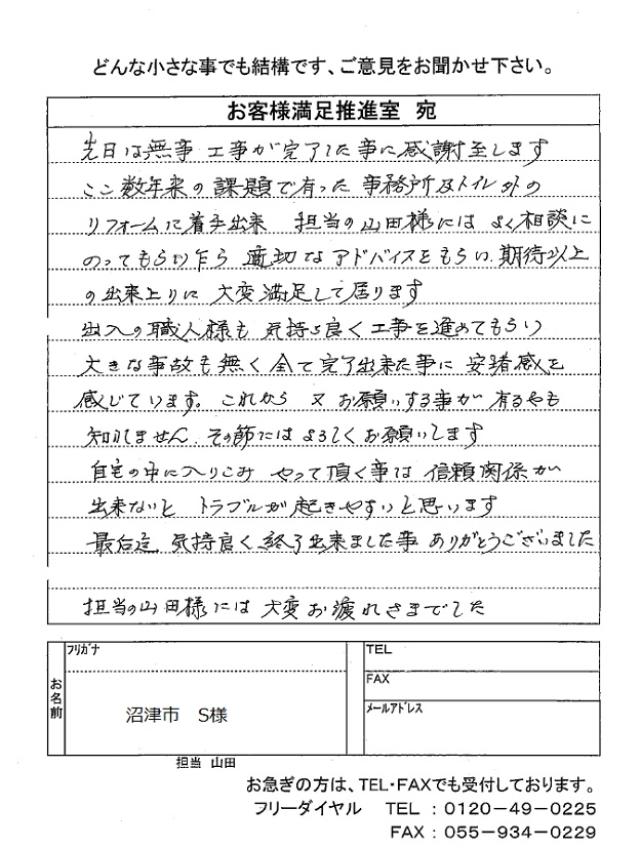 どんな小さな事でも結構です、ご意見をお聞かせ下さい。
お客様満足推進室 宛
先日は無事 工事が完了した事に感謝至します
ここ数年来の課題で有った 事務所及トイレ外の
リフォームに着手出来 担当の山田様には よく相談に
のってもらい乍ら 適切なアドバイスをもらい 期待以上
の出来上りに 大変満足して居ります
出入の職人様も 気持ち良く工事を進めてもらい
大きな事故も無く全て完了出来た事に 安堵感を
感じています。これから 又お願いする事が 有るやも
知れません その節にはよろしくお願いします
自宅の中に入りこみ やって頂く事は 信頼関係が
出来ないと トラブルが起きやすいと思います
最后迄 気持良く終了出来ました事 ありがとうございました
担当の山田様には 大変お疲れさまでした
フリガナ
お名前
沼津市 S様
TEL
FAX
メールアドレス
担当 山田
お急ぎの方は、TEL・FAXでも受付しております。
フリーダイヤル TEL：0120－49－0225
FAX：055－934－0229